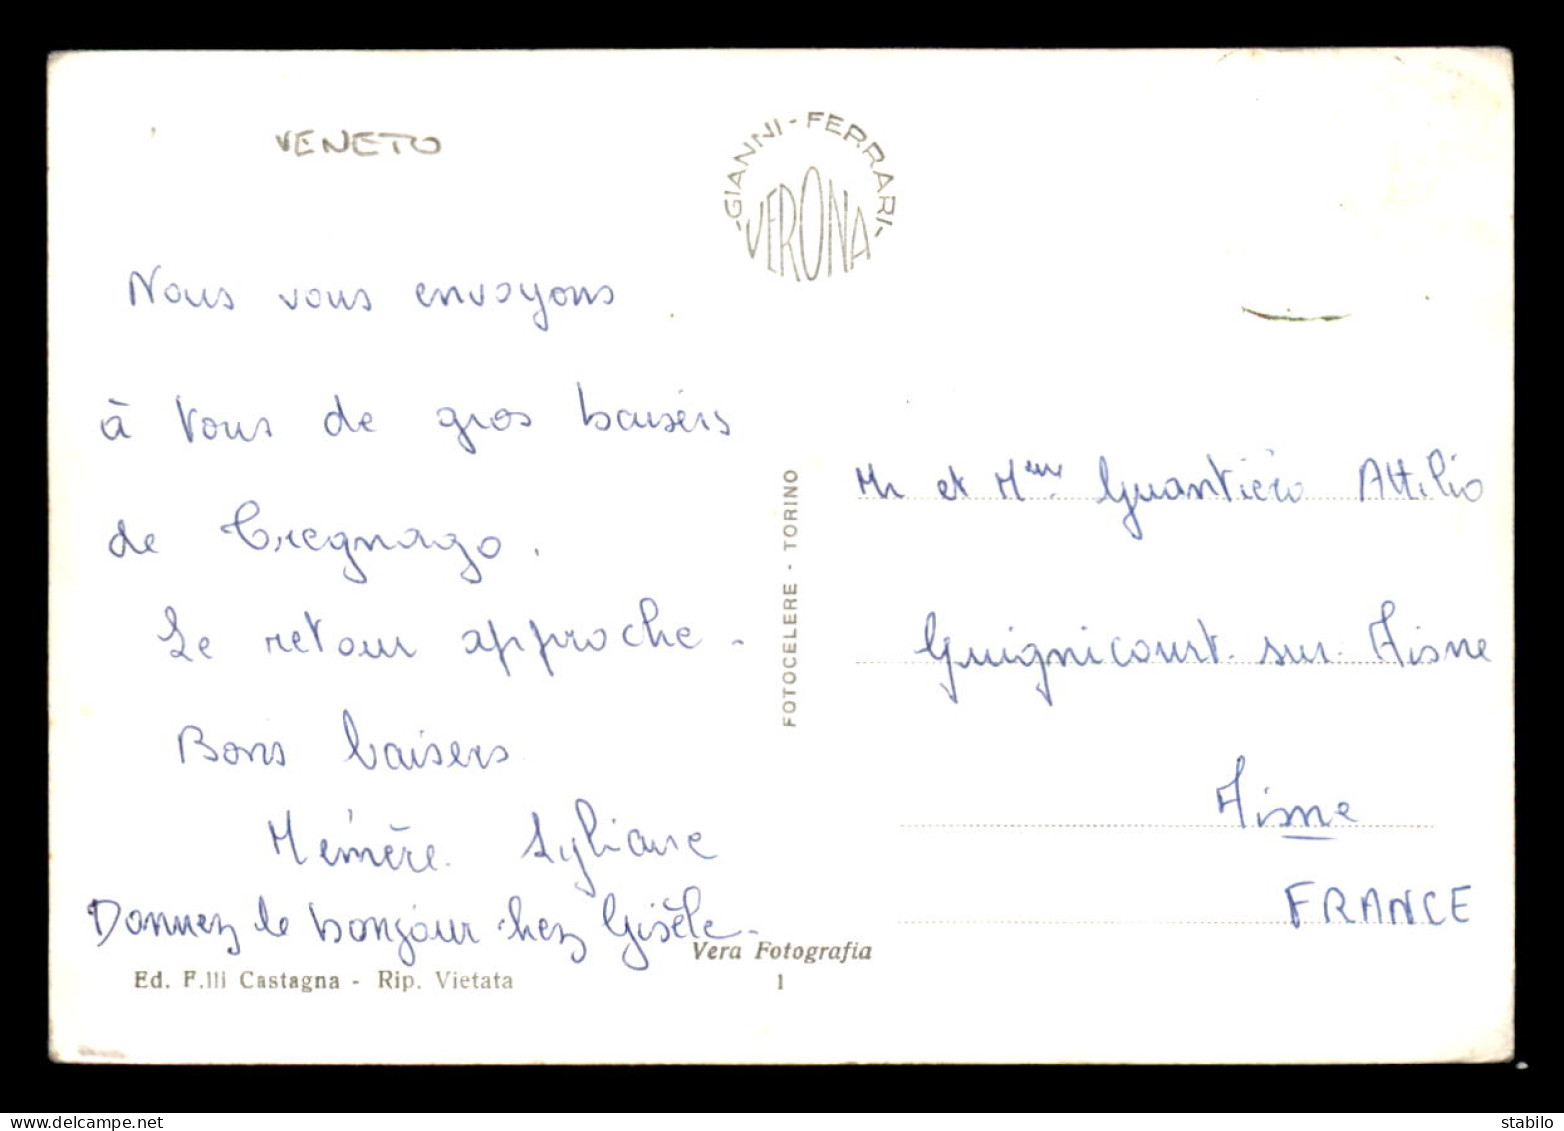 VENETO
- GIANNI - FERRARI -
VERONA
Nous vous envoyons
à vous de gros baisers
de Tregnago.
Le retour approche -
Bons baisers
Mémère. Lyliane
Donnez le bonjour chez Gisèle -
Ed. F.lli Castagna - Rip. Vietata
FOTOCELERE - TORINO
Vera Fotografia
1
Mr et Mme Guantiéro Attilio
Guignicourt sur Aisne
Aisne
FRANCE
stabilo